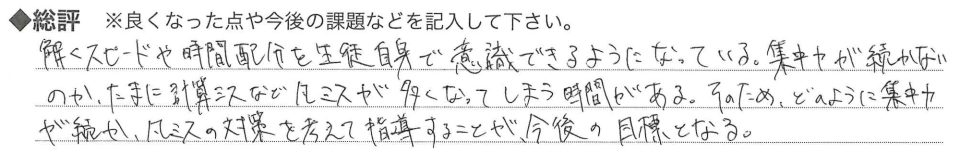 ◆総評 ※良くなった点や今後の課題などを記入して下さい。
解くスピードや時間配分を生徒自身で意識できるようになっている。集中力が続かない
のか、たまに計算ミスなど凡ミスが多くなってしまう時間がある。そのため、どのように集中力
が続か、凡ミスの対策を考えて指導することが、今後の目標となる。